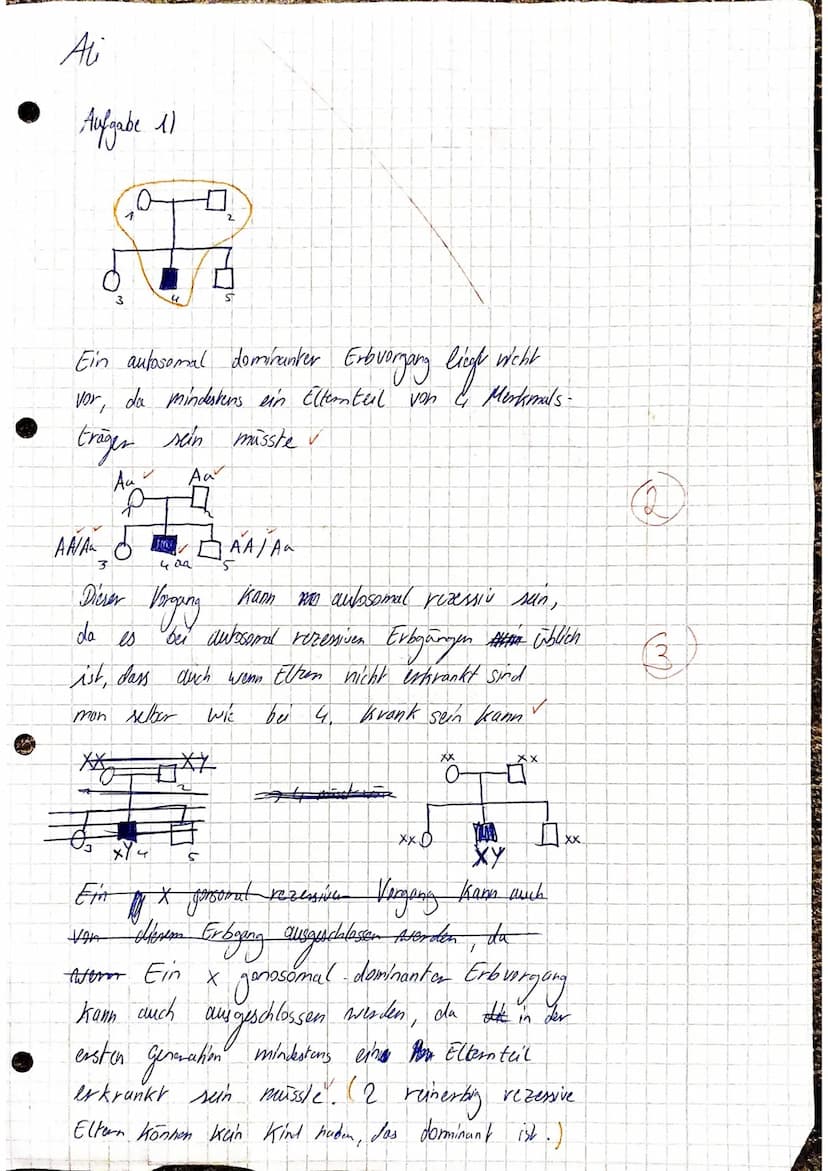 Ali
Aufgabe 1)
1 2
3 4 5
Ein autosomal dominanter Erbvorgang liegt nicht
vor, da mindestens ein Elternteil von 4 Merkmals-
träger sein müsste ✓
Aa ✓ Aa ✓
1 2
AA/Aa AA/Aa
3 4 aa 5
2
Dieser Vorgang kann autosomal rezessiv sein,
da es bei autosomal rezessiven Erbgängen üblich
ist, dass auch wenn Eltern nicht erkrankt sind
man selber wie bei 4. krank sein kann ✓
3
XX XY
2
3 XY 4 5
xx xx
xx xx
XY
Ein X gonosomal rezessiven Vorgang kann auch
von diesem Erbgang ausgeschlossen werden, da
wenn Ein x gonosomal-dominanter Erbvorgang
kann auch ausgeschlossen werden, da in der
ersten Generation mindestens ein Elternteil
erkrankt sein müsste. (2 reinerbig rezessive
Eltern können kein Kind haben, das dominant ist.)